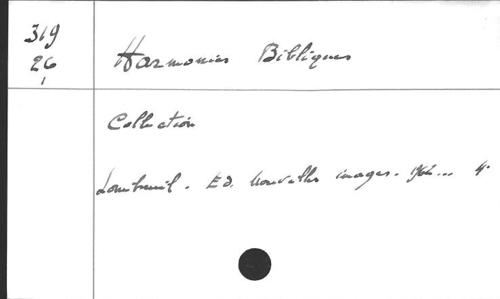 319
26
1
Harmonies Bibliques
Collection
Lombreuil. Ed. Nouvelles images. 196... 4°